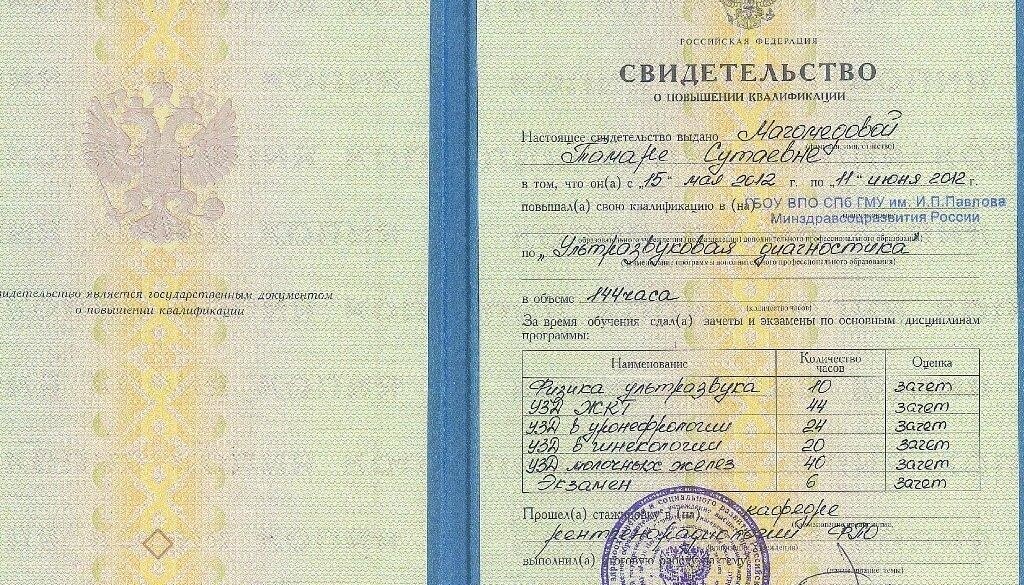 видетельство является государственным документом
о повышении квалификации
РОССИЙСКАЯ ФЕДЕРАЦИЯ
СВИДЕТЕЛЬСТВО
О ПОВЫШЕНИИ КВАЛИФИКАЦИИ
Настоящее свидетельство выдано Магомедовой
(фамилия, имя, отчество)
Тамаре Сутаевне
в том, что он(а) с „15“ мая 2012 г. по „11“ июня 2012 г.
повышал(а) свою квалификацию в (на) ГБОУ ВПО СПб ГМУ им. И.П.Павлова
Минздравсоцразвития России
по „Ультразвуковая диагностика“
дополнительного профессионального образования)
в объеме 144 часа
(количество часов)
За время обучения сдал(а) зачеты и экзамены по основным дисциплинам
программы:
Наименование Количество часов Оценка
Физика ультразвука 10 зачет
УЗД ЖКТ 44 зачет
УЗД в уронефрологии 24 зачет
УЗД в гинекологии 20 зачет
УЗД молочных желез 40 зачет
Экзамен 6 зачет
Прошел(а) стажировку в (на) кафедре
(наименование предприятия,
рентгенорадиологии ФПО
выполнил(а) итоговую работу на тему:
(наименование темы)